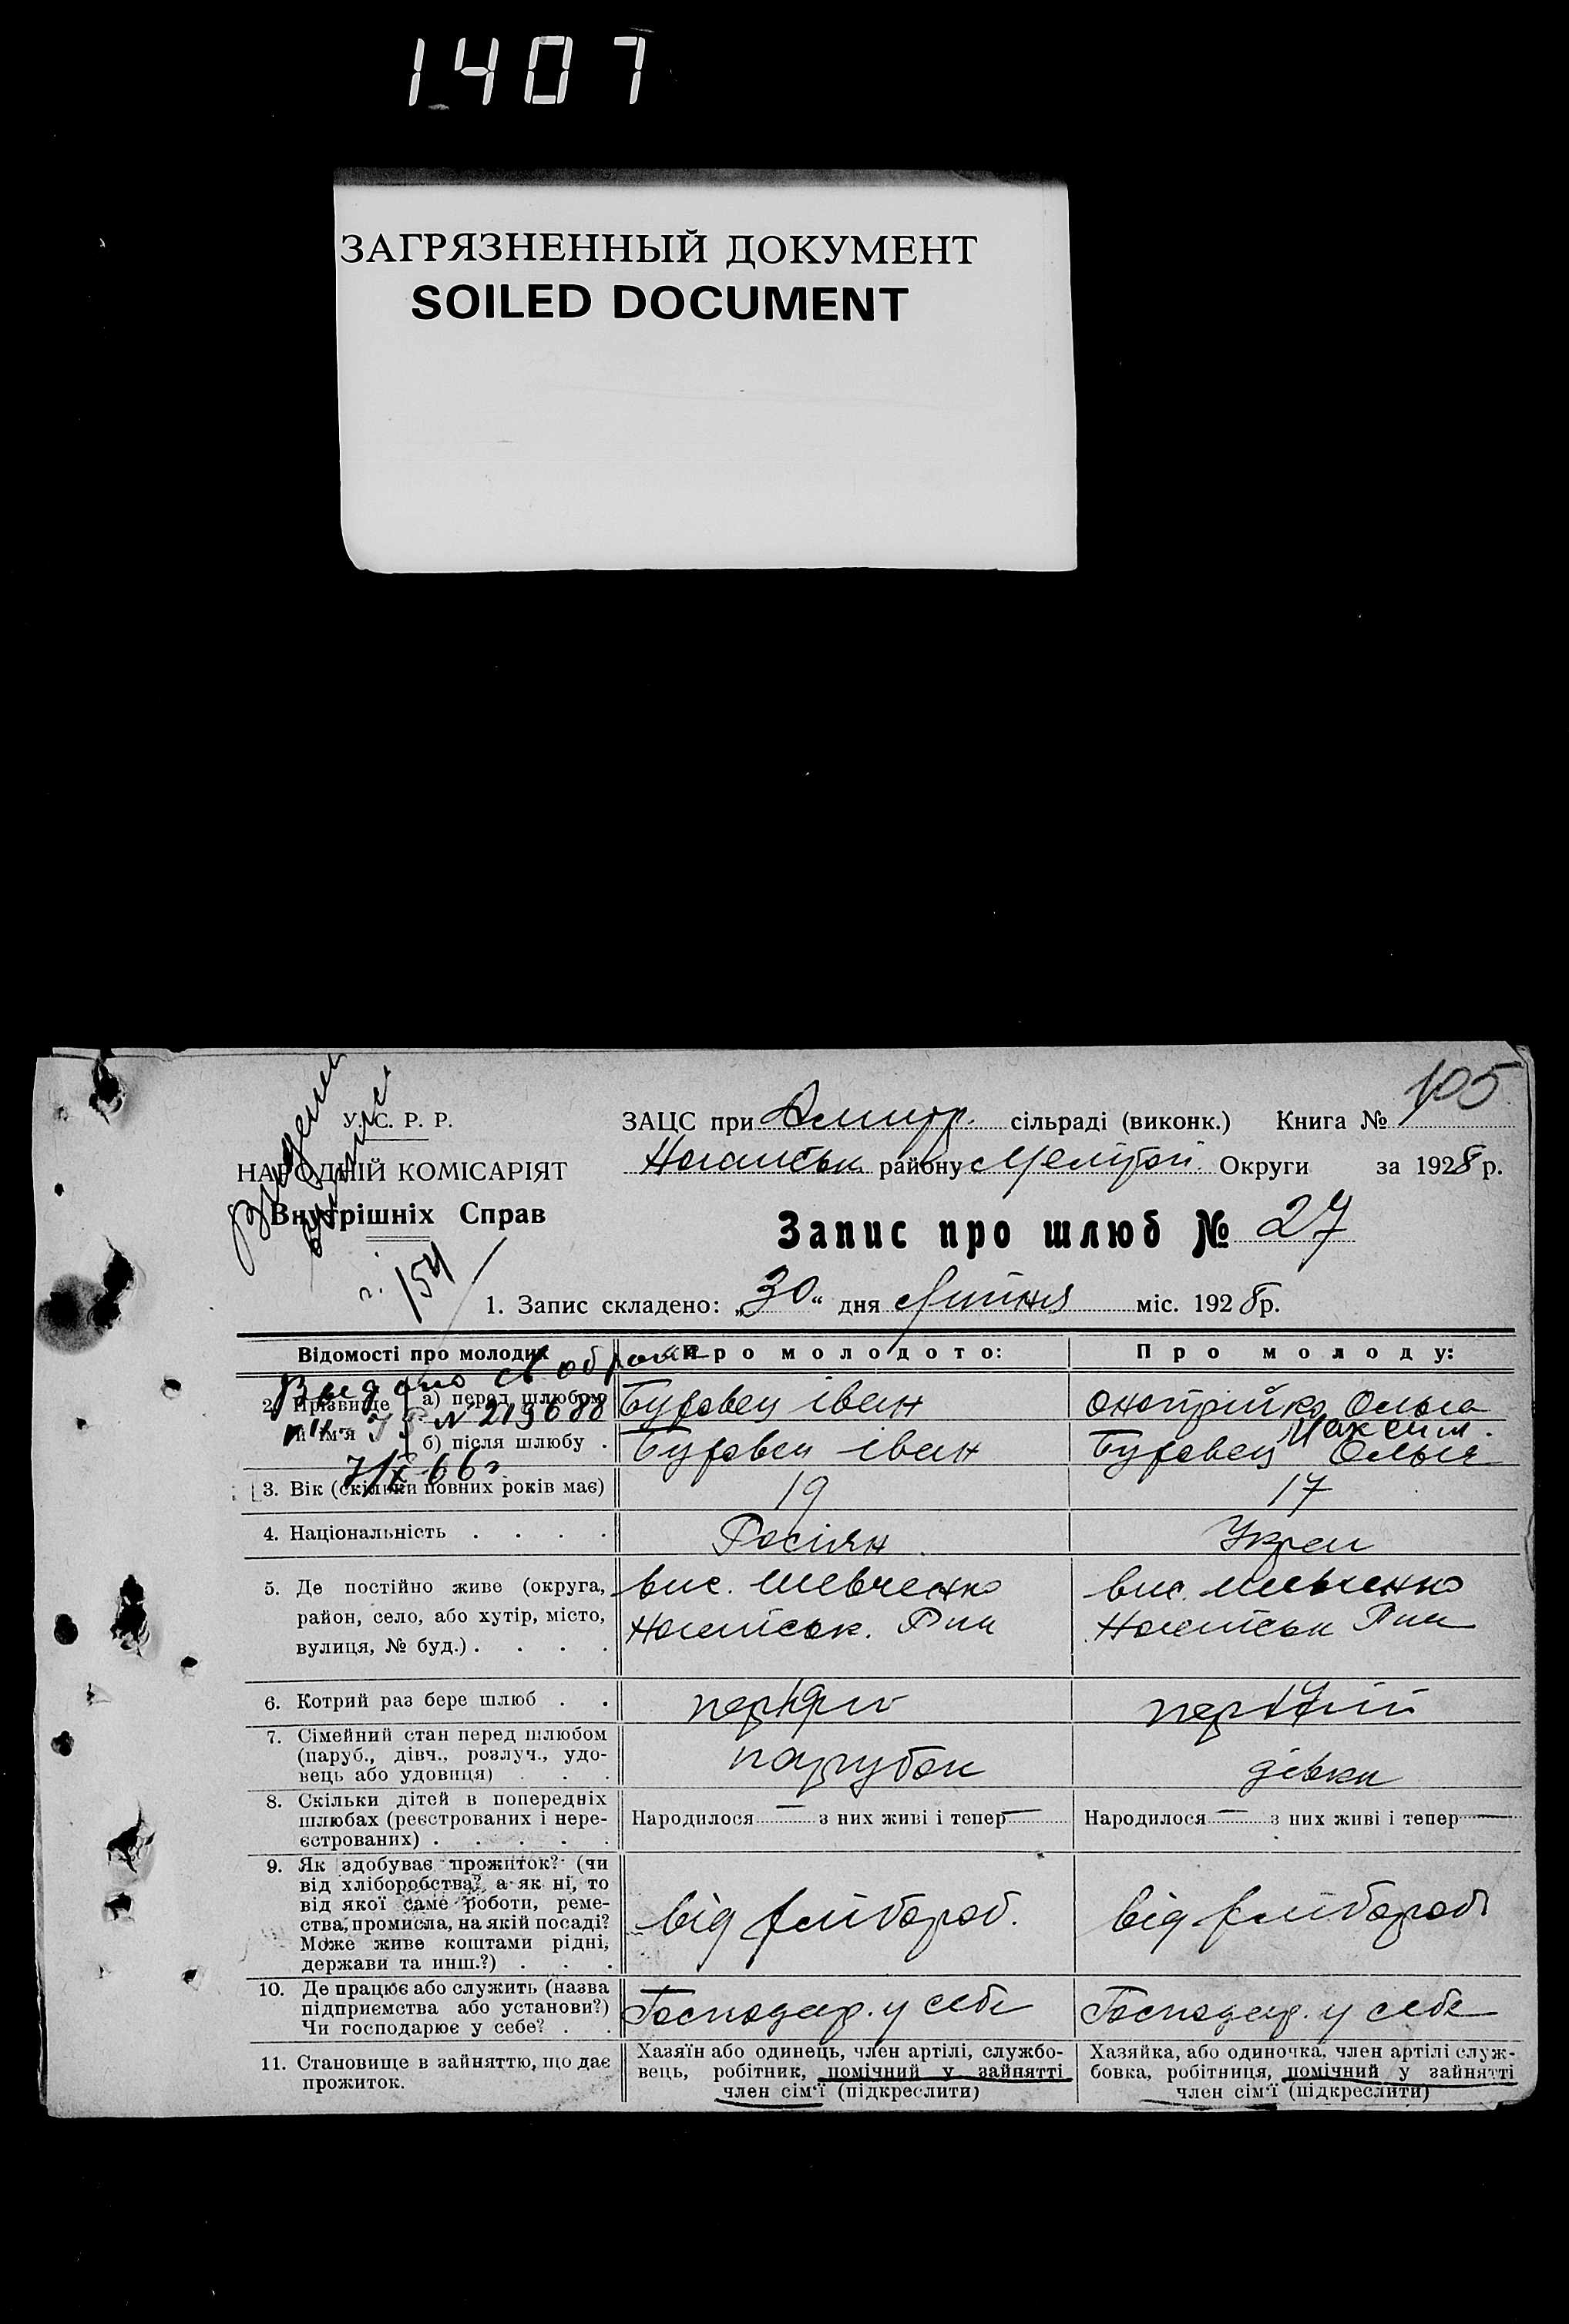 1407
ЗАГРЯЗНЕННЫЙ ДОКУМЕНТ
SOILED DOCUMENT
105
У. С. Р. Р.
НАРОДНІЙ КОМІСАРІЯТ
Внутрішніх Справ
ЗАЦС при сільраді (виконк.) Книга №
Ногайськ району Мелітоп Округи за 1928 р.
Запис про шлюб № 27
154
1. Запис складено: „30“ дня Липня міс. 1928 р.
Відомості про молодих
Про молодого:
Про молоду:
Видано
№ 219688
2. Прізвище й ім'я
а) перед шлюбом
іван
Онопрійко Ольга
Максим.
б) після шлюбу .
іван
Ольга
3. Вік (скільки повних років має)
19
17
4. Національність . . . .
Росіян.
Украї
5. Де постійно живе (округа,
район, село, або хутір, місто,
вулиця, № буд.) . . . .
вис. Шевченко
Ногайськ. Р-ну
вис. Шевченко
Ногайськ Р-ну
6. Котрий раз бере шлюб . .
перший
перший
7. Сімейний стан перед шлюбом
(паруб., дівч., розлуч., удо-
вець або удовиця) . . .
парубок
дівка
8. Скільки дітей в попередніх
шлюбах (реєстрованих і нере-
єстрованих) . . . . .
Народилося — з них живі і тепер —
Народилося — з них живі і тепер —
9. Як здобуває прожиток? (чи
від хліборобства? а як ні, то
від якої саме роботи, реме-
ства, промисла, на якій посаді?
Може живе коштами рідні,
держави та инш.?) . . .
від хлібороб.
від хлібороб
10. Де працює або служить (назва
підприємства або установи?)
Чи господарює у себе? . .
Господар. у себе
Господар. у себе
11. Становище в зайняттю, що дає
прожиток.
Хазяїн або одинець, член артілі, службо-
вець, робітник, помічний у зайнятті
член сім'ї (підкреслити)
Хазяйка, або одиночка, член артілі служ-
бовка, робітниця, помічний у зайнятті
член сім'ї (підкреслити)